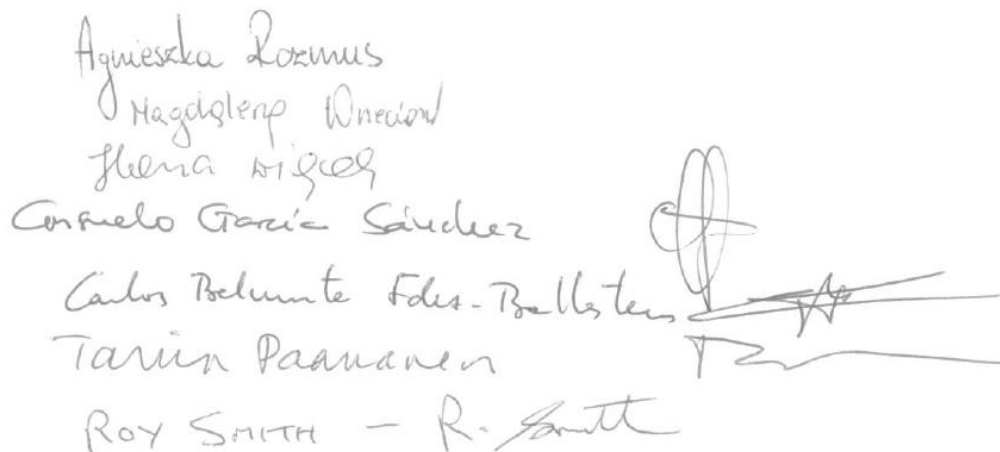 Agnieszka Rozmus
Magdalena
Consuelo García Sánchez
Carlos Belmonte Fdez-Ballesteros
Paananen
ROY SMITH - R. Smith